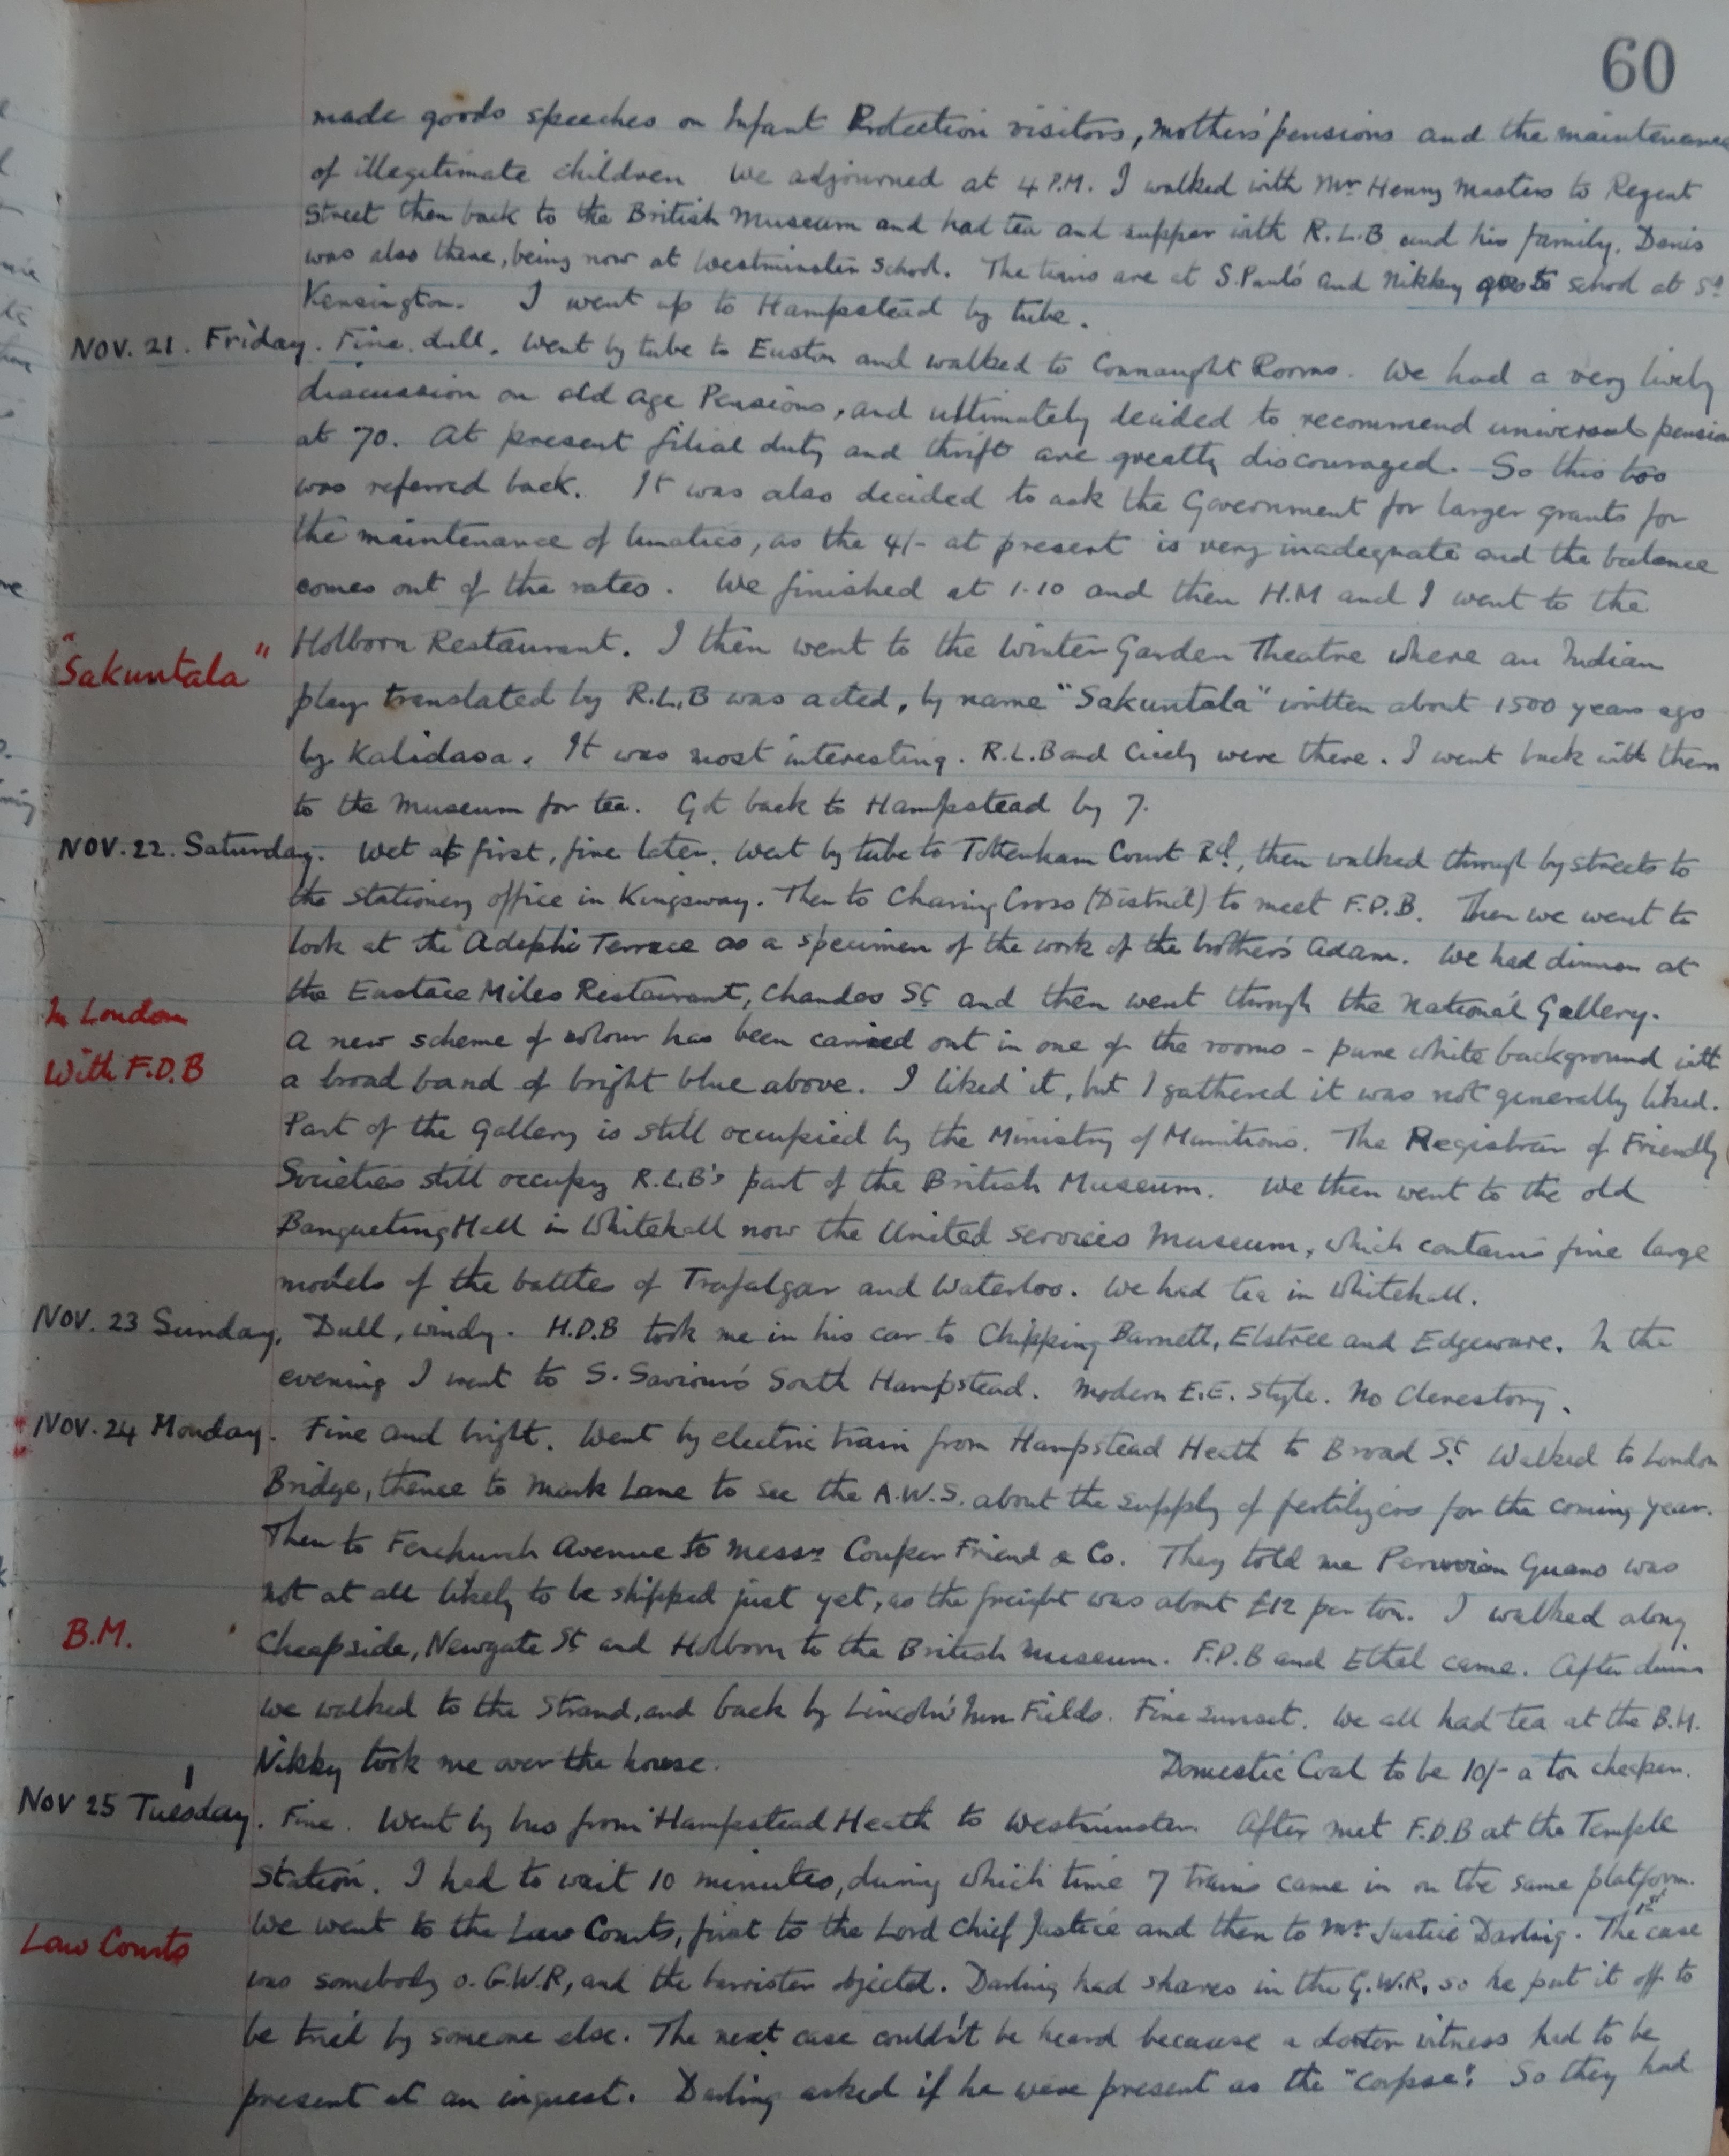 60
made goods speeches on Infant Protection visitors, mothers' pensions and the maintenance
of illegitimate children We adjourned at 4 P.M. I walked with Mr Henry Masters to Regent
Street then back to the British Museum and had tea and supper with R.L.B and his family. Denis
was also there, being now at Westminster School. The twins are at S. Paul's and Nikky goes to school at Sth
Kensington. I went up to Hampstead by tube.
NOV. 21. Friday. Fine. dull. Went by tube to Euston and walked to Connaught Rooms. We had a very lively
discussion on old age Pensions, and ultimately decided to recommend universal pension
at 70. At present filial duty and thrift are greatly discouraged. So this too
was referred back. It was also decided to ask the Government for larger grants for
the maintenance of lunatics, as the 4/- at present is very inadequate and the balance
comes out of the rates. We finished at 1.10 and then H.M and I went to the
"Sakuntala" Holborn Restaurant. I then went to the Winter Garden Theatre where an Indian
play translated by R.L.B was acted, by name "Sakuntala" written about 1500 years ago
by Kalidasa. It was most interesting. R.L.B and Cicely were there. I went back with them
to the Museum for tea. Got back to Hampstead by 7.
NOV. 22. Saturday. Wet at first, fine later. Went by tube to Tottenham Court Rd, then walked through by streets to
the stationery office in Kingsway. Then to Charing Cross (District) to meet F.D.B. Then we went to
look at the Adelphi Terrace as a specimen of the work of the brothers Adam. We had dinner at
In London the Eustace Miles Restaurant, Chandos St and then went through the National Gallery.
A new scheme of colour has been carried out in one of the rooms - pure white background with
With F.D.B a broad band of bright blue above. I liked it, but I gathered it was not generally liked.
Part of the Gallery is still occupied by the Ministry of Munitions. The Registrar of Friendly
Societies still occupy R.L.B's part of the British Museum. We then went to the old
Banqueting Hall in Whitehall now the United Services Museum, which contains fine large
models of the battles of Trafalgar and Waterloo. We had tea in Whitehall.
NOV. 23 Sunday, Dull, windy. H.D.B took me in his car to Chipping Barnett, Elstree and Edgeware. In the
evening I went to S. Saviour's South Hampstead. Modern E.E. style. No Clerestory.
NOV. 24 Monday. Fine and bright. Went by electric train from Hampstead Heath to Broad St. Walked to London
Bridge, thence to Mark Lane to see the A.W.S. about the supply of fertilizers for the coming year.
Then to Fenchurch Avenue to Messrs Couper Friend & Co. They told me Peruvian Guano was
not at all likely to be shipped just yet, as the freight was about £12 per ton. I walked along
B.M. Cheapside, Newgate St and Holborn to the British Museum. F.D.B and Ethel came. After dinner
we walked to the Strand, and back by Lincoln's Inn Fields. Fine sunset. We all had tea at the B.M.
Nikky took me over the house. Domestic Coal to be 10/- a ton cheaper.
Nov 25 Tuesday. Fine. Went by bus from Hampstead Heath to Westminster. After met F.D.B at the Temple
Station. I had to wait 10 minutes, during which time 7 trains came in on the same platform.
Law Courts We went to the Law Courts, first to the Lord Chief Justice and then to Mr Justice Darling. The 1st case
was somebody v. G.W.R, and the barrister objected. Darling had shares in the G.W.R, so he put it off to
be tried by someone else. The next case couldn't be heard because a doctor witness had to be
present at an inquest. Darling asked if he were present as the "corpse". So they had